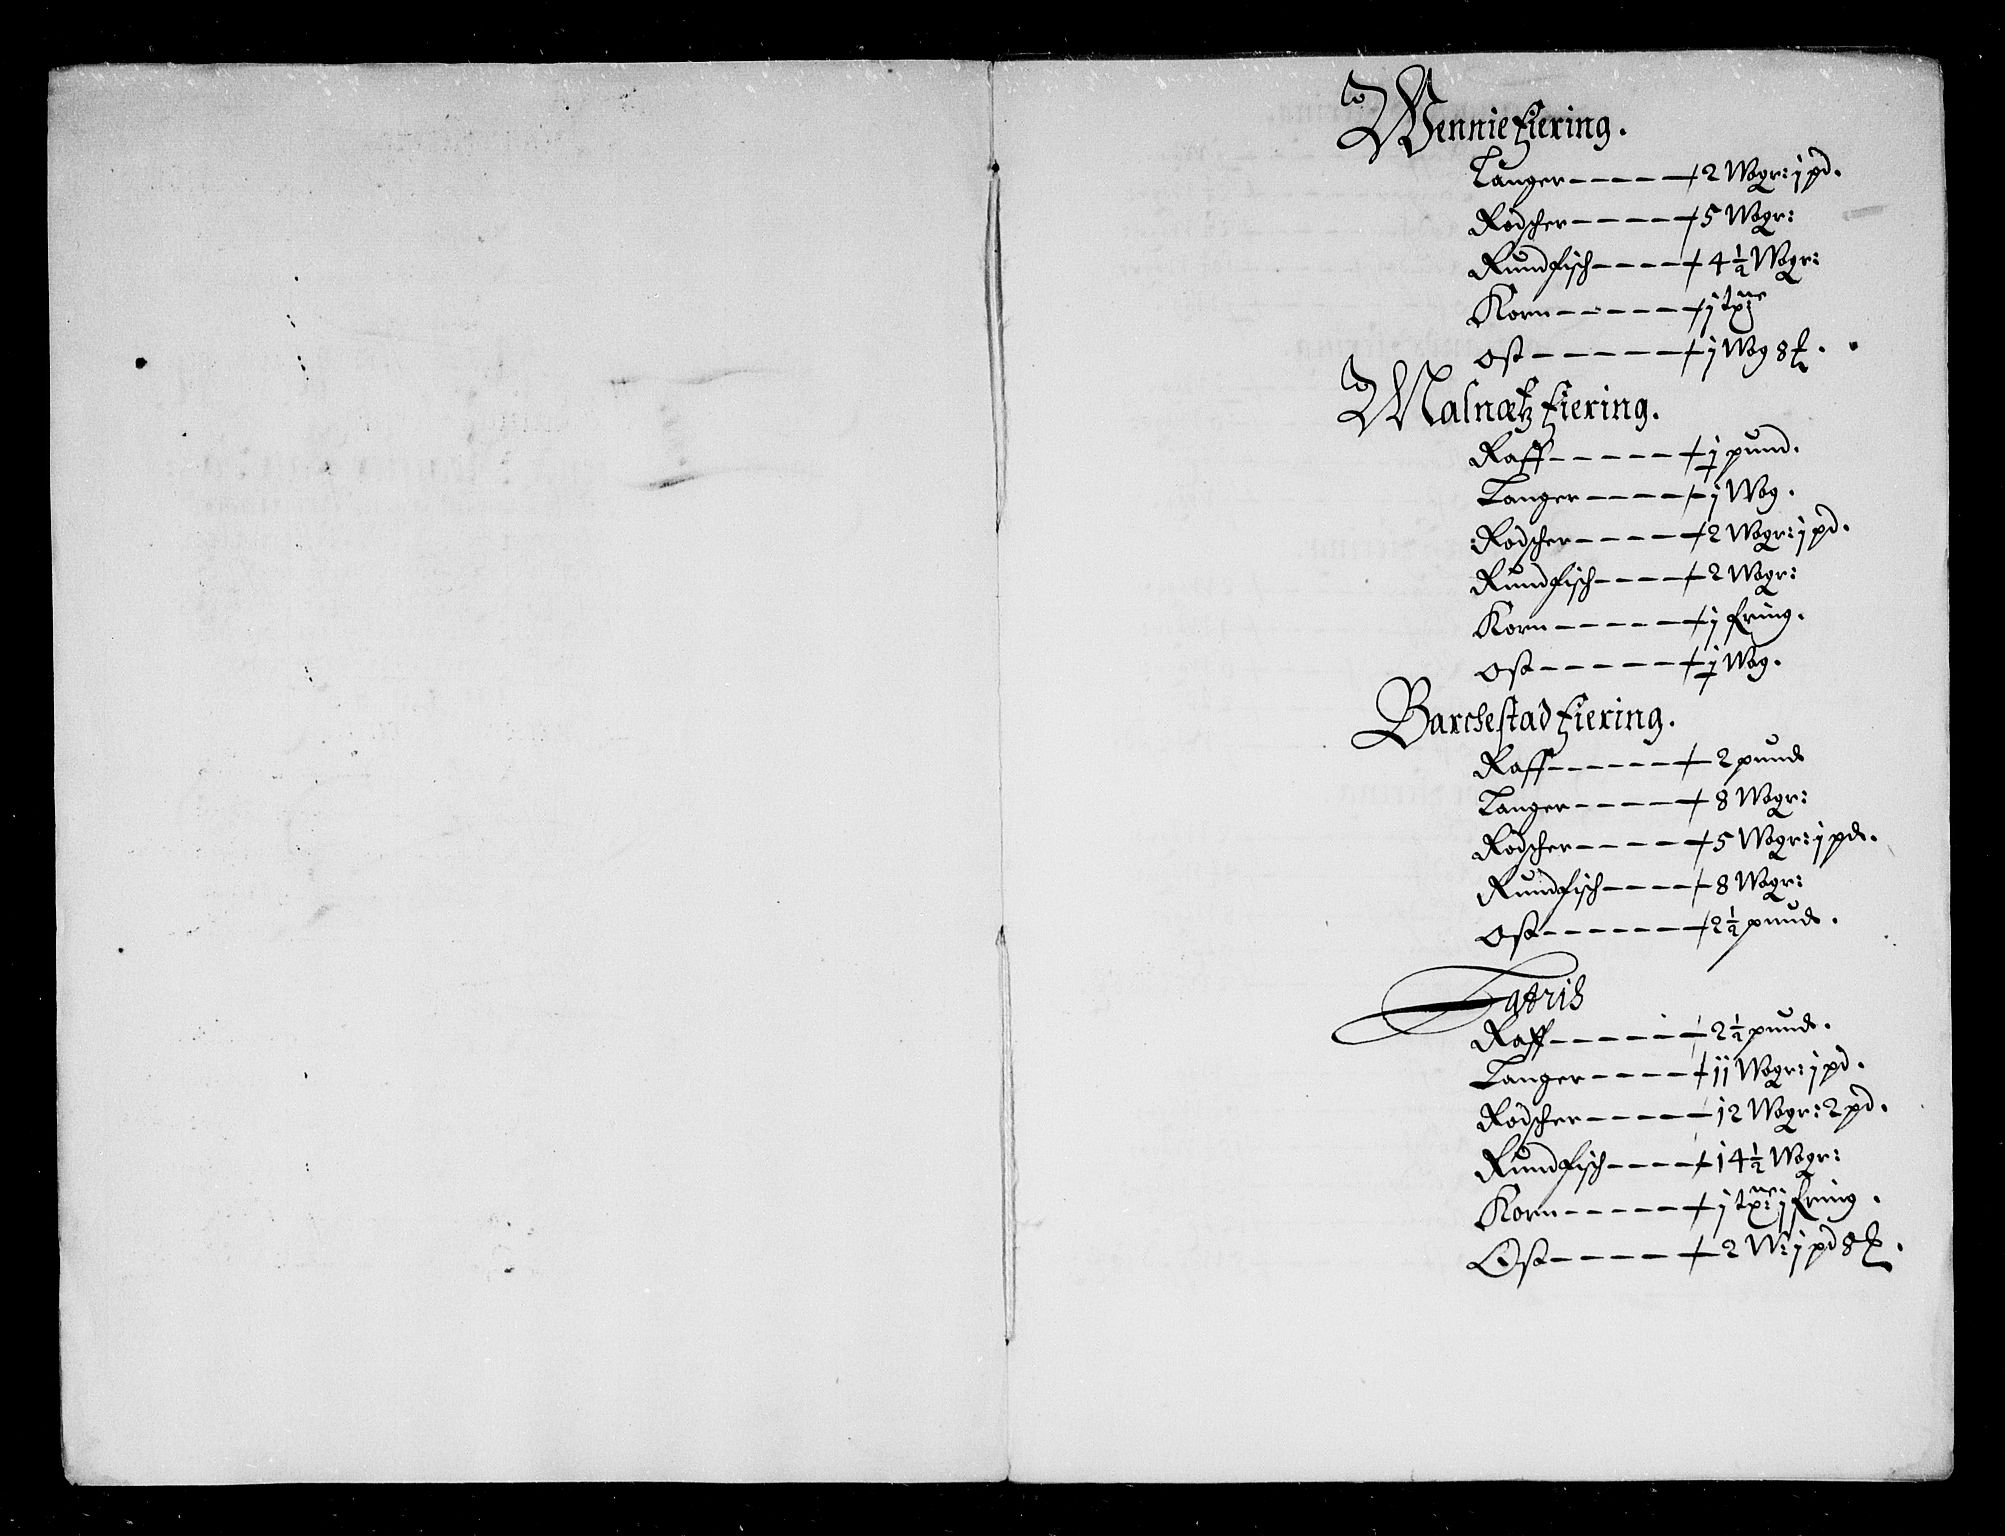 Wennie fiering.
Langer - - - - - 2 Wogr: j pd.
Rodscher - - - - - 5 Wogr:
Rundfisch - - - - - 4 ½ Wogr:
Korn - - - - - - j
Ost - - - - - - j Wog 8
Malnæs fiering.
Raff - - - - - - ½ pund.
Langer - - - - - j Wog.
Rodscher - - - - - 2 Wogr: j pd.
Rundfisch - - - - - 2 Wogr:
Korn - - - - - - j fring.
Ost - - - - - - ½ Wog.
Barchestad fiering.
Raff - - - - - - 2 pund
Langer - - - - - 8 Wogr:
Rodscher - - - - - 5 Wogr: j pd.
Rundfisch - - - - - 8 Wogr:
Ost - - - - - - 2 ½ pund.
Lateris
Raff - - - - - - 2 ½ pund.
Langer - - - - - 11 Wogr: j pd.
Rodscher - - - - - 12 Wogr: 2 pd.
Rundfisch - - - - - 14 ½ Wogr:
Korn - - - - - - j j fring.
Ost - - - - - - 2 W: j pd 8